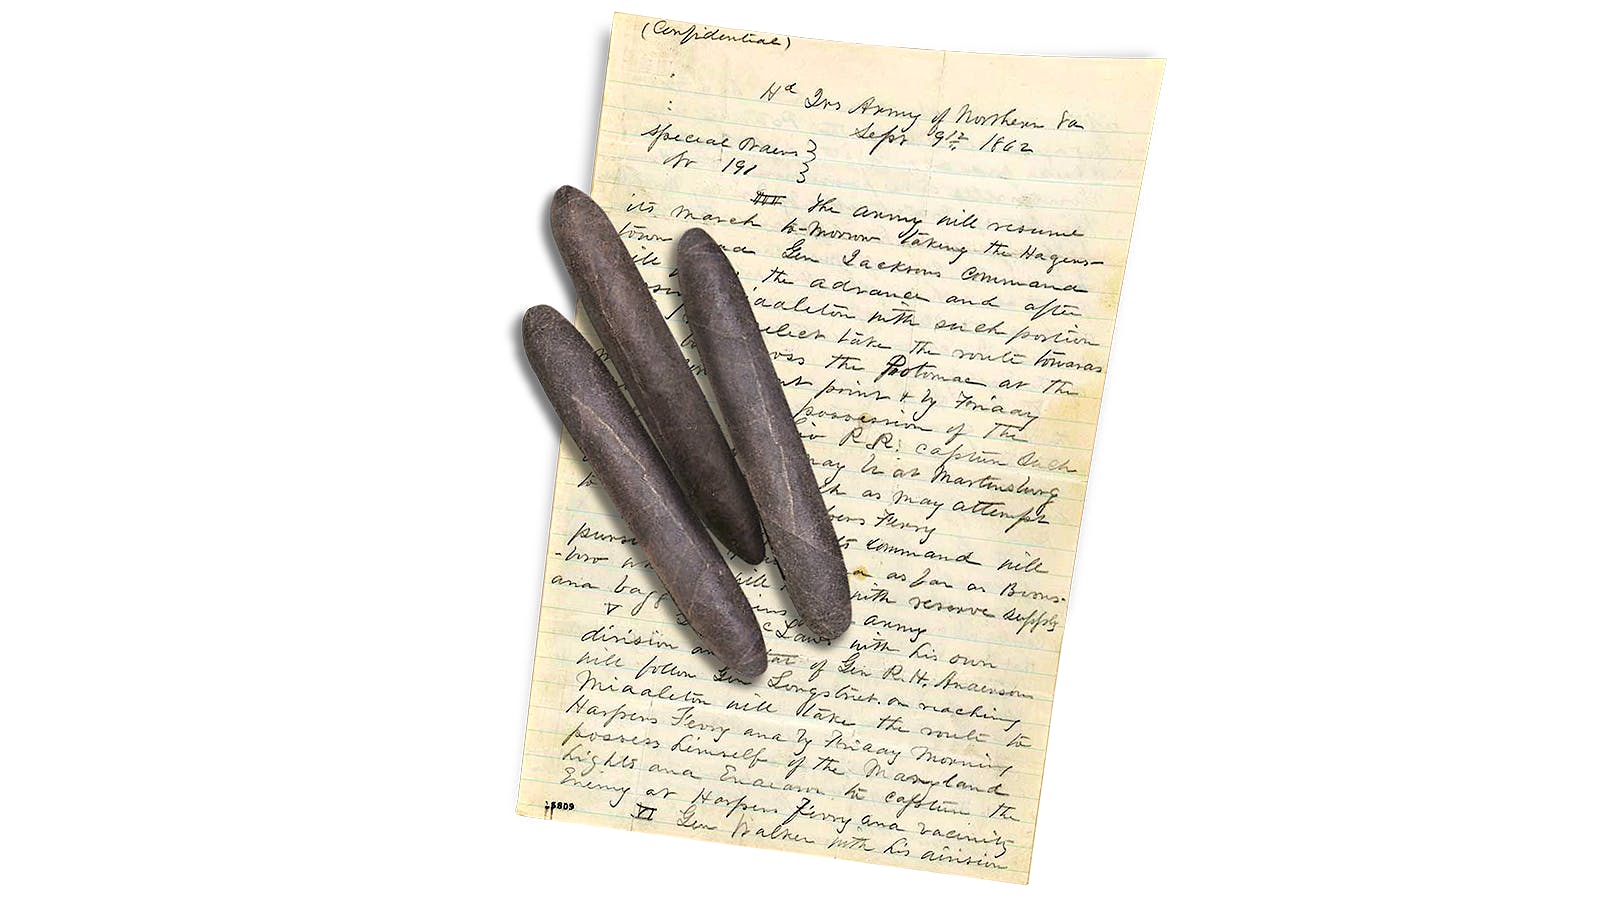 (Confidential)
Hd Qrs Army of Northern Va
Sept 9th 1862
Special Orders }
Nr 191 }
III The army will resume
its march to-morrow taking the Hagers-
town Gen Jacksons Command
the advance and after
with such portion
select take the route towards
the Potomac at the
point & by Friday
possession of the
R.R. capture such
may be at Martinsburg
as may attempt
Ferry
command will
as far as Boons-
-boro with reserve supply
and army
V with his own
division of Gen R.H. Anderson
will follow Gen Longstreet. on reaching
Middleton will take the route to
Harpers Ferry and by Friday Morning
possess himself of the Maryland
hights and Endeavor to capture the
Enemy at Harpers Ferry and vacinity
VI Gen Walker with his division
5809